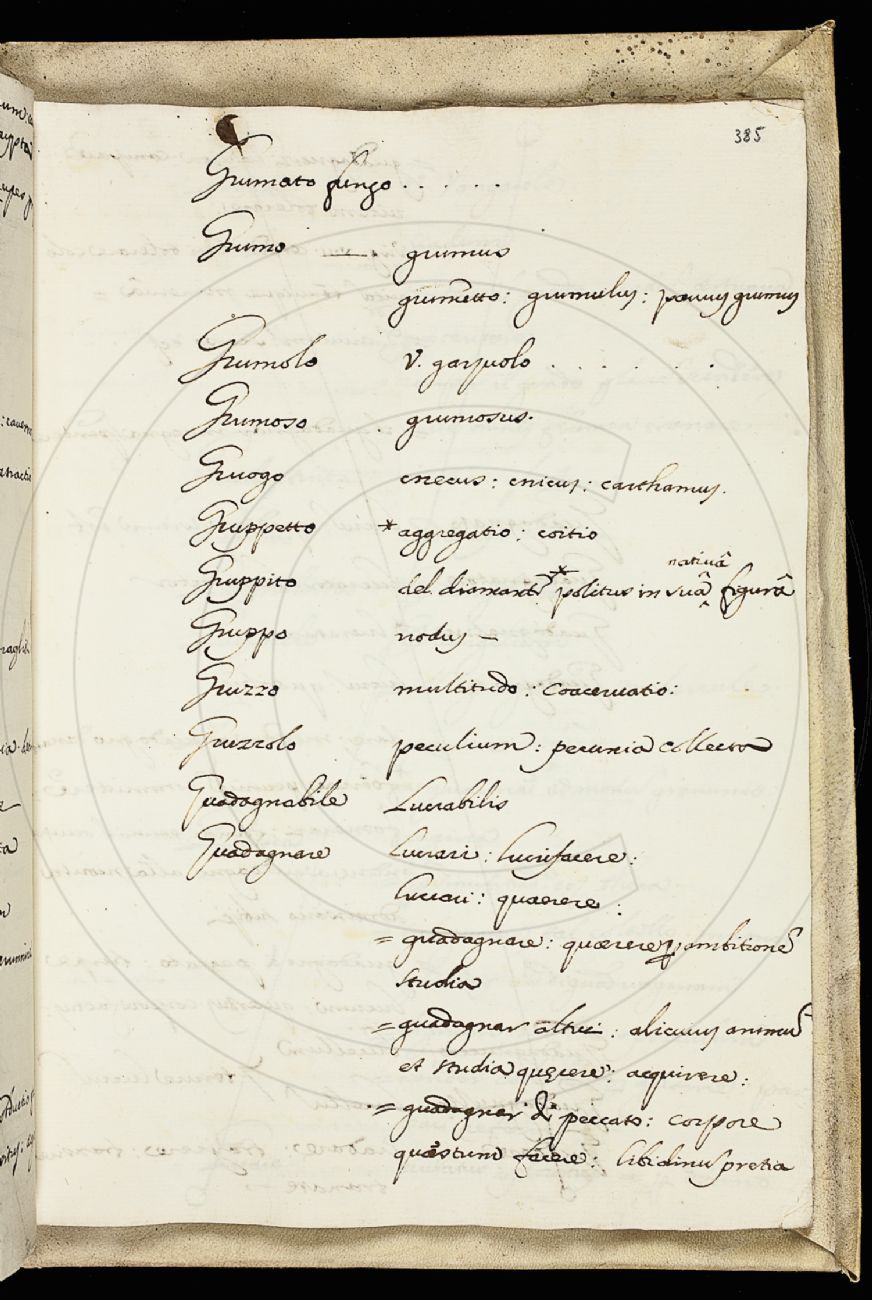 385
Grumato fungo . . . . .
Grumo — . grumus
grumetto : grumulus : parvus grumus
Grumolo v. garzuolo . . . . .
Grumoso . grumosus.
Gruogo cnecus : cnicus : carthamus.
Gruppetto * aggregatio : coitio
nativâ
Gruppito del diamante * politus in suâ figurâ
Gruppo nodus —
Gruzzo multitudo : coacervatio :
Gruzzolo peculium : pecunia collecta
Guadagnabile Lucrabilis
Guadagnare Lucrari : lucrifacere :
lucrari : quaerere :
= guadagnare : quaerere p ambitionē
studia
= guadagnar altrui : alicuius animū
et studia quęrere : acquirere :
= guadagnar di peccato : corpore
quaestum facere : libidinus pretia